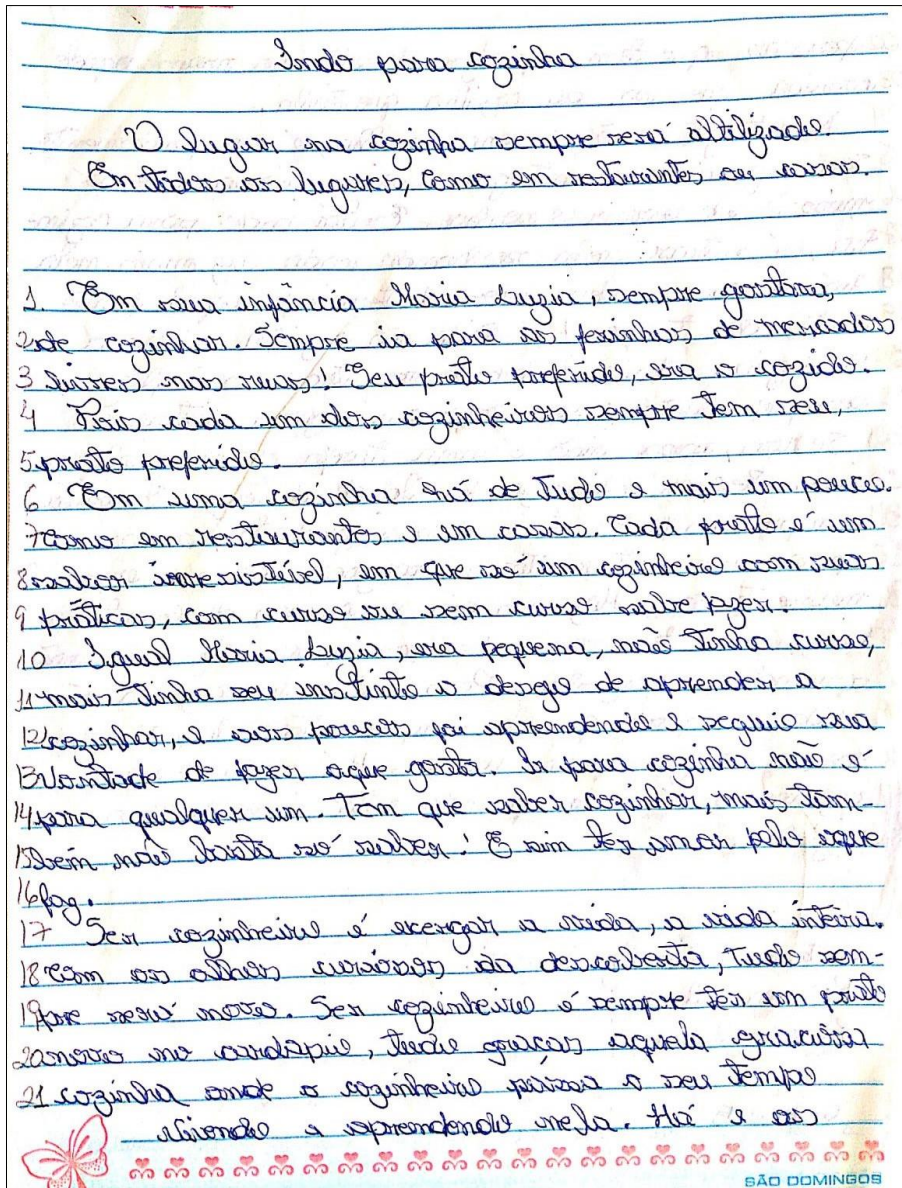 Indo para cozinha
O lugar na cozinha sempre será altilizado.
Em todos os lugares, como em restaurantes ou casas.
1. Em sua infância Maria Luzia, sempre gostava,
2 de cozinhar. Sempre ia para as feirinhas de mercados
3 livres nas ruas. Seu prato preferido, era o cozido.
4 Pois cada um dos cozinheiros sempre tem seu,
5 prato preferido.
6 Em uma cozinha há de tudo e mais um pouco.
7 Como em restaurantes e em casas. Cada prato é um
8 sabor irresistível, em que só um cozinheiro com suas
9 práticas, com curso ou sem curso sabe fazer.
10 Igual Maria Luzia, era pequena, não tinha curso,
11 mais tinha seu instinto o desejo de aprender a
12 cozinhar, e aos poucos foi apreendendo e seguio sua
13 Vontade de fazer oque gosta. Ir para cozinha não é
14 para qualquer um. Tem que saber cozinhar, mais tam-
15 bem não basta só saber. E sim ter amor pelo oque
16 faz.
17 Ser cozinheiro é exergar a vida, a vida inteira.
18 Com os olhos curiosos da descoberta, tudo sem-
19 pre será novo. Ser cozinheiro é sempre ter um prato
20 novo no cardapio, tudo graças aquela
21 cozinha onde o cozinheiro passa o seu tempo
Vivendo e aprendendo nela. Há e os
SÃO DOMINGOS